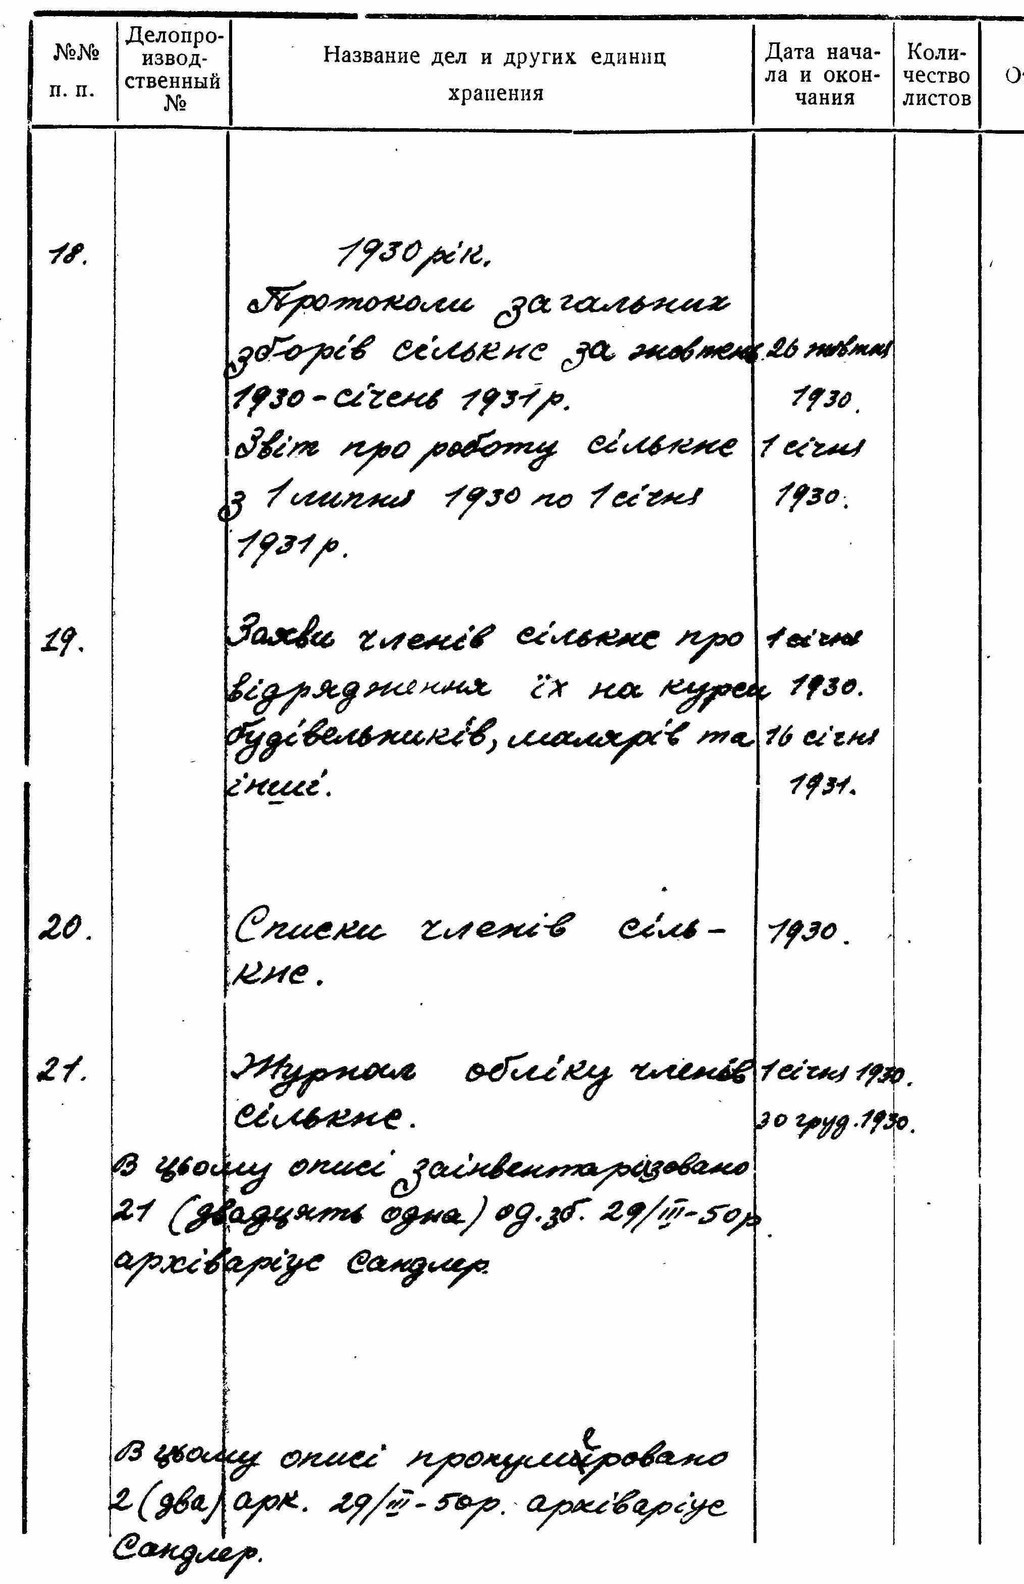 №№ п. п.
Делопро-
извод-
ственный
№
Название дел и других единиц
хранения
Дата нача-
ла и окон-
чания
Коли-
чество
листов
18. 1930 рік.
Протоколи загальних
зборів сількнс за жовтень 26 жовтня
1930 - січень 1931 р. 1930.
Звіт про роботу сількнс 1 січня
з 1 липня 1930 по 1 січня 1930.
1931 р.
19. Заяви членів сількнс про 1 січня
відрядження їх на курси 1930.
будівельників, малярів та 16 січня
інші. 1931.
20. Списки членів сіль- 1930.
кнс.
21. Журнал обліку членів 1 січня 1930.
сількнс. 30 груд. 1930.
В цьому описі заінвентарізовано
21 (двадцять одна) од. зб. 29/III-50р.
архіваріус Сандлер.
В цьому описі пронумеровано
2 (два) арк. 29/III-50р. архіваріус
Сандлер.